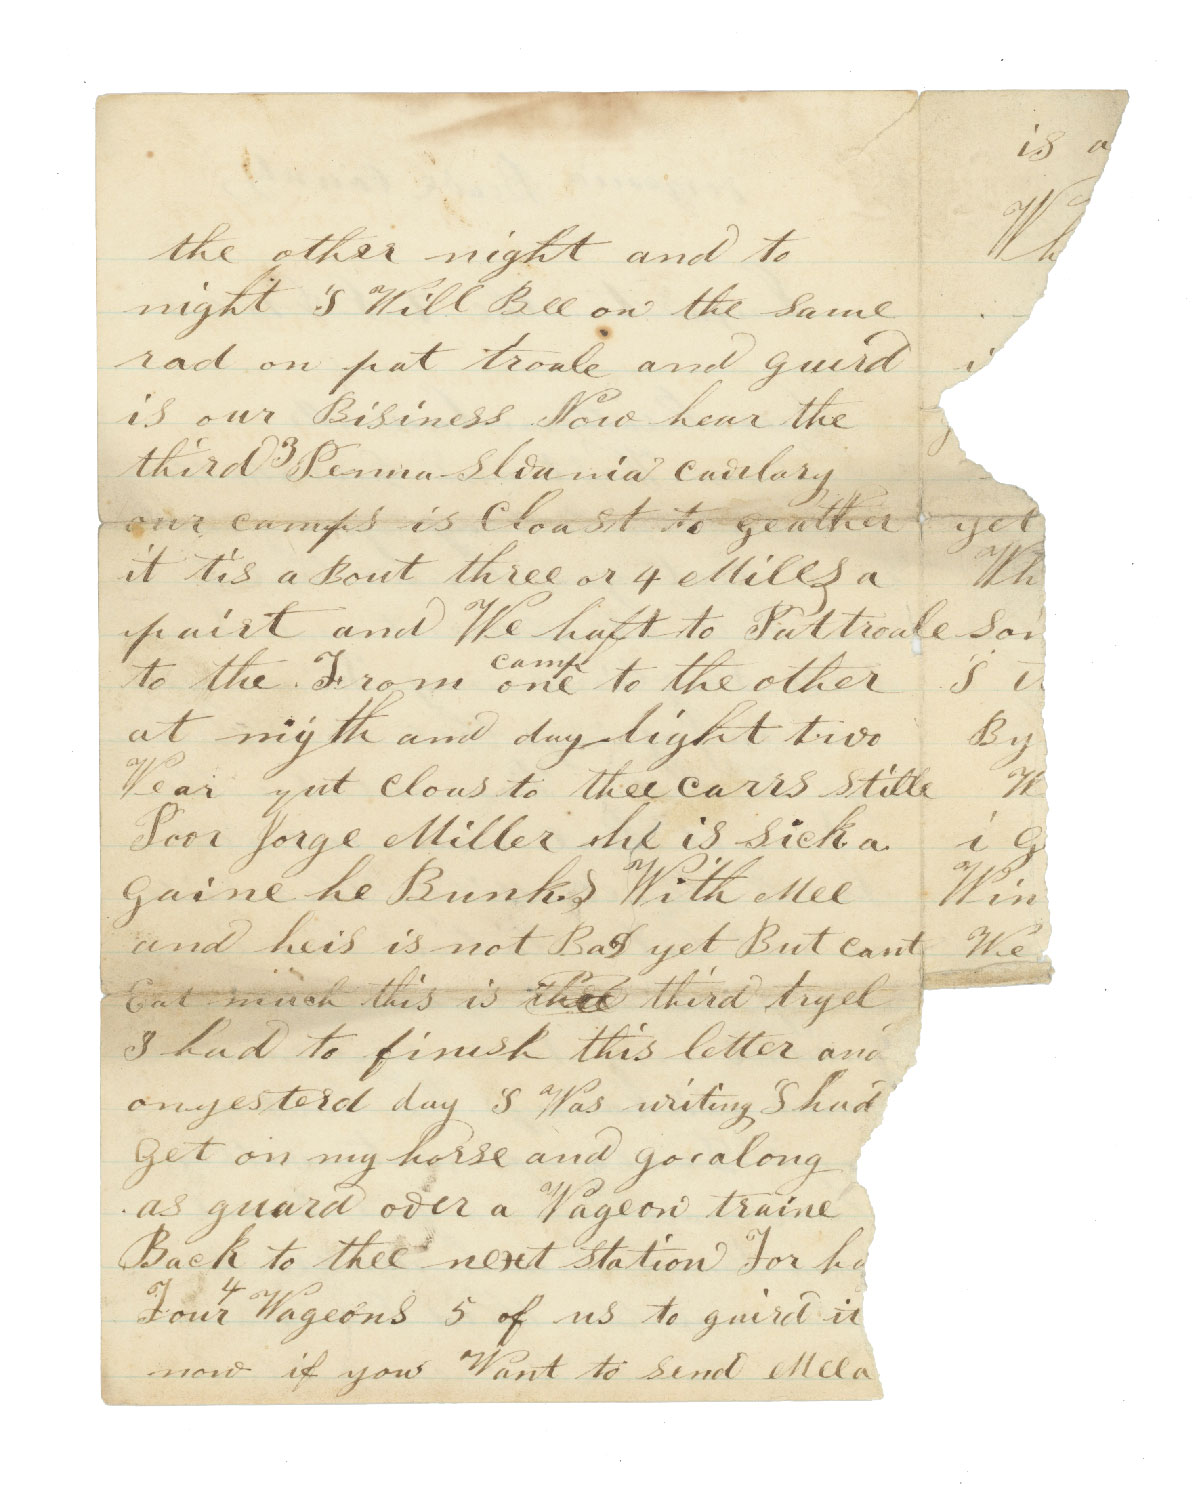 the other night and to
night I Will Bee on the same
rad on pat troale and guird
is our Bisiness Now hear the
third 3 Penna Slvania cavlary
our camps is Cloast to geather
it tis a Bout three or 4 Miles a
pairt and We haft to Pattroale
to the From one camp to the other
at nigth and day light two
Wear yut clous to thee carrs stille
Poor Jorge Miller he is sick a
gaine he Bunks With Mee
and heis is not Bad yet But cant
Eat much this is thee third tryel
I had to finish this letter and
on yesterd day I Was writing I had
Get on my horse and go along
as guard over a Wageon traine
Back to thee next station For
Four 4 Wageons 5 of us to guird it
now if you Want to send Mee a
is a
Wh
yet
Wh
I
By
W
i G
Win
We